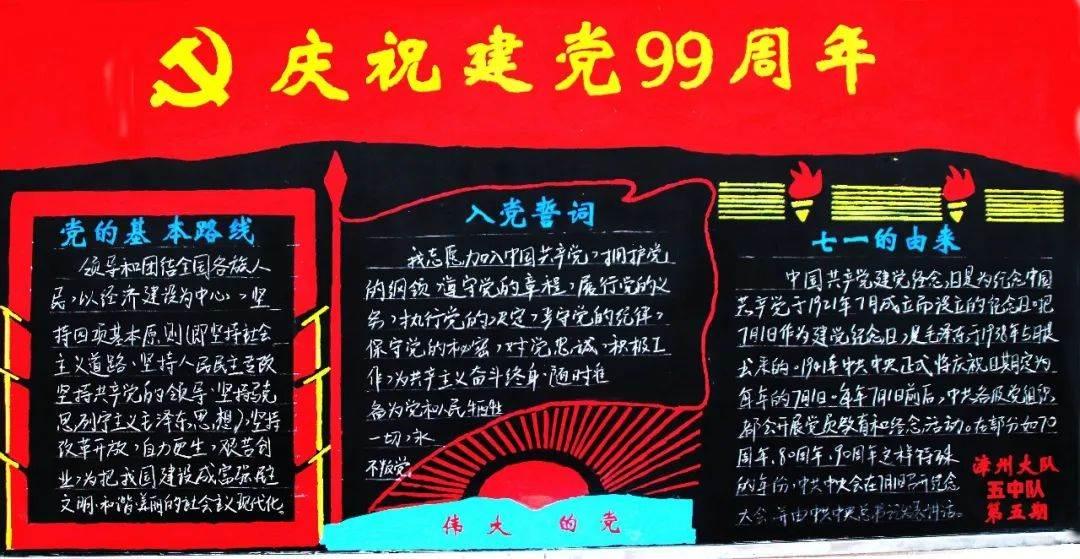 庆祝建党99周年
党的基本路线
领导和团结全国各族人
民，以经济建设为中心，坚
持四项基本原则（即坚持社会
主义道路、坚持人民民主专政
坚持共产党的领导、坚持马克
思列宁主义毛泽东思想）坚持
改革开放，自力更生，艰苦创
业，为把我国建设成富强民主
文明和谐美丽的社会主义现代化
入党誓词
我志愿加入中国共产党，拥护党
的纲领，遵守党的章程，履行党的义
务，执行党的决定，严守党的纪律，
保守党的秘密，对党忠诚，积极工
作，为共产主义奋斗终身，随时准
备为党和人民牺牲
一切，永
不叛党。
伟大 的党
七一的由来
中国共产党建党纪念日是为纪念中国
共产党于1921年7月成立而设立的纪念日。把
7月1日作为建党纪念日，是毛泽东于1938年5月提
出来的。1941年中共中央正式将庆祝日期定为
每年的7月1日。每年7月1日前后，中共各级党组织
都会开展党员教育和纪念活动。在部分如70
周年、80周年、90周年这样特殊
的年份，中共中央会在7月1日召开纪念
大会，并由中共中央总书记发表讲话。
漳州大队
五中队
第五期